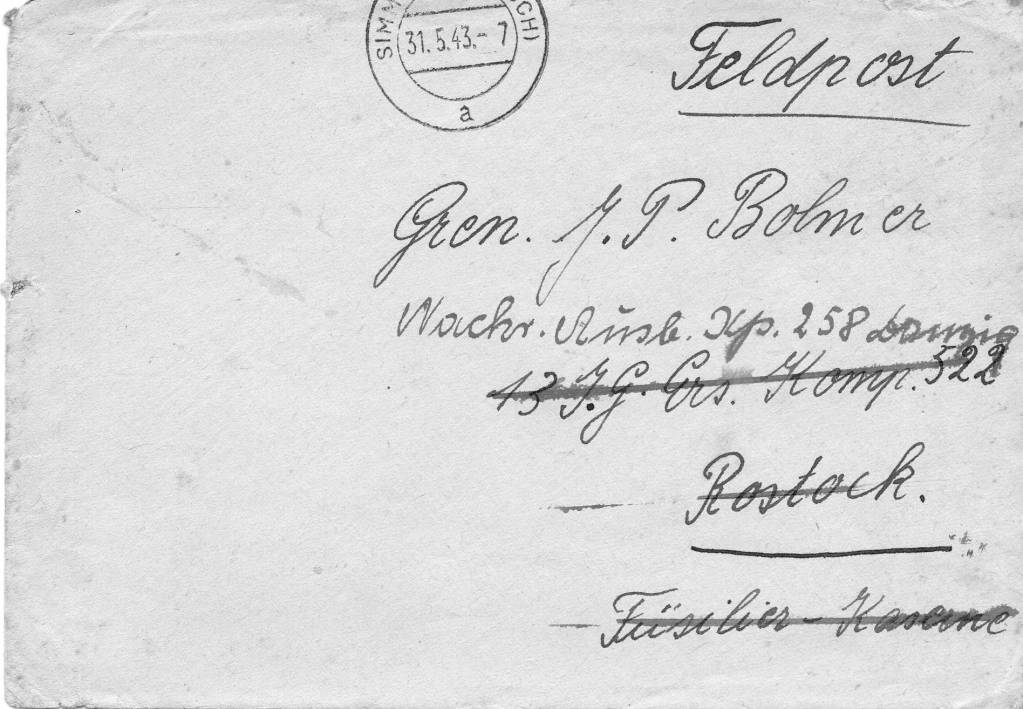 SIMM CH)
31.5.43.- 7
a
Feldpost
Gren. J. P. Bolmer
Nachr. Ausb. Kp. 258 Danzig
13 J.G. Ers. Komp. 522
Rostock.
Füsilier - Kaserne